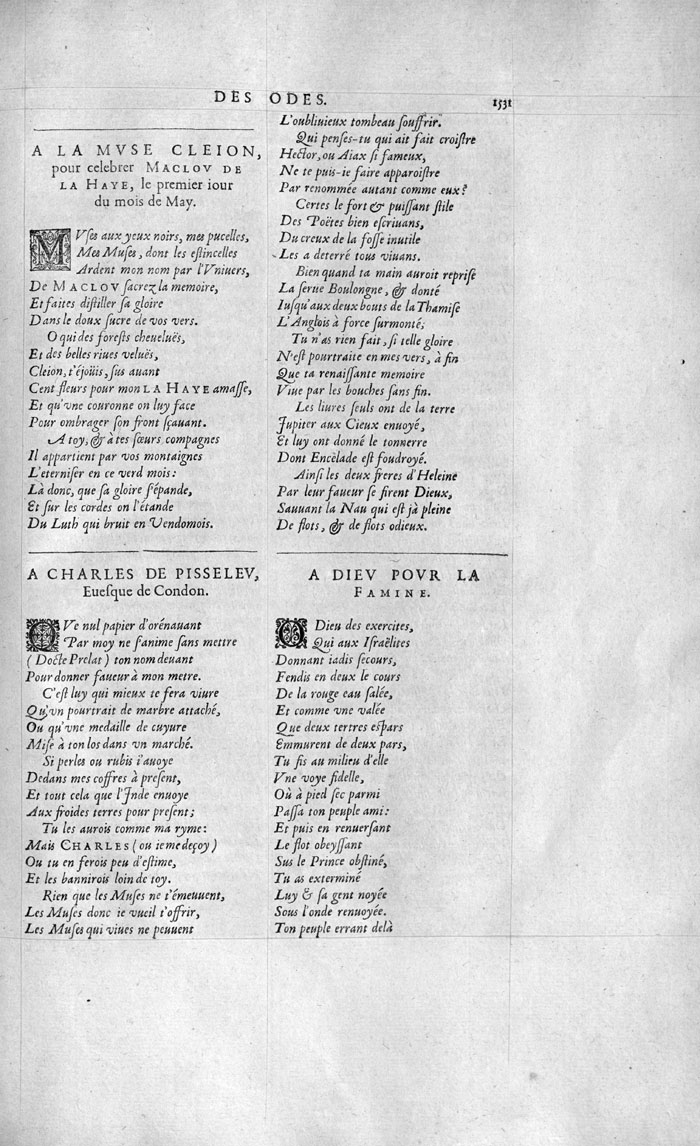 DES ODES.
1531
A LA MVSE CLEION,
pour celebrer MACLOV DE
LA HAYE, le premier iour
du mois de May.
MVses aux yeux noirs, mes pucelles,
Mes Muses, dont les estincelles
Ardent mon nom par l'Vniuers,
De MACLOV sacrez la memoire,
Et faites distiller sa gloire
Dans le doux sucre de vos vers.
O qui des forests cheueluës,
Et des belles riues veluës,
Cleion, t'éjoüis, sus auant
Cent fleurs pour mon LA HAYE amasse,
Et qu'vne couronne on luy face
Pour ombrager son front sçauant.
A toy, & à tes sœurs compagnes
Il appartient par vos montaignes
L'eterniser en ce verd mois:
Là donc, que sa gloire s'épande,
Et sur les cordes on l'étande
Du Luth qui bruit en Vendomois.
A CHARLES DE PISSELEV,
Euesque de Condon.
QVe nul papier d'orénauant
Par moy ne s'anime sans mettre
(Docte Prelat) ton nom deuant
Pour donner faueur à mon metre.
C'est luy qui mieux te fera viure
Qu'vn pourtrait de marbre attaché,
Ou qu'vne medaille de cuyure
Mise à ton los dans vn marché.
Si perles ou rubis i'auoye
Dedans mes coffres à present,
Et tout cela que l'Inde enuoye
Aux froides terres pour present;
Tu les aurois comme ma ryme:
Mais CHARLES (ou ie me deçoy)
Ou tu en ferois peu d'estime,
Et les bannirois loin de toy.
Rien que les Muses ne t'émeuuent,
Les Muses donc ie vueil t'offrir,
Les Muses qui viues ne peuuent
L'oubliuieux tombeau souffrir.
Qui penses-tu qui ait fait croistre
Hector, ou Aiax si fameux,
Ne te puis-ie faire apparoistre
Par renommée autant comme eux?
Certes le fort & puissant stile
Des Poëtes bien escriuans,
Du creux de la fosse inutile
Les a deterré tous viuans.
Bien quand ta main auroit reprise
La serue Boulongne, & donté
Iusqu'aux deux bouts de la Thamise
L'Anglois à force surmonté;
Tu n'as rien fait, si telle gloire
N'est pourtraite en mes vers, à fin
Que ta renaissante memoire
Viue par les bouches sans fin.
Les liures seuls ont de la terre
Jupiter aux Cieux enuoyé,
Et luy ont donné le tonnerre
Dont Encelade est foudroyé.
Ainsi les deux freres d'Heleine
Par leur faueur se firent Dieux,
Sauuant la Nau qui est jà pleine
De flots, & de flots odieux.
A DIEV POVR LA
FAMINE.
O Dieu des exercites,
Qui aux Israëlites
Donnant iadis secours,
Fendis en deux le cours
De la rouge eau salée,
Et comme vne valée
Que deux tertres espars
Emmurent de deux pars,
Tu fis au milieu d'elle
Vne voye fidelle,
Où à pied sec parmi
Passa ton peuple ami:
Et puis en renuersant
Le flot obeyssant
Sus le Prince obstiné,
Tu as exterminé
Luy & sa gent noyée
Sous l'onde renuoyée.
Ton peuple errant delà